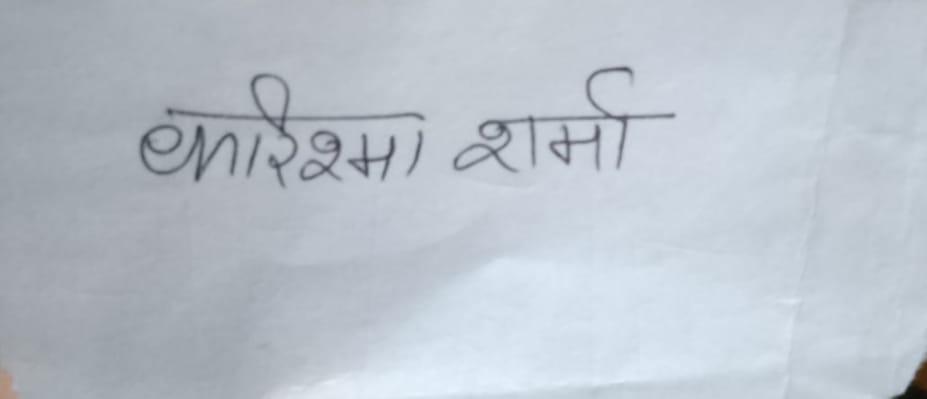 करिश्मा शर्मा